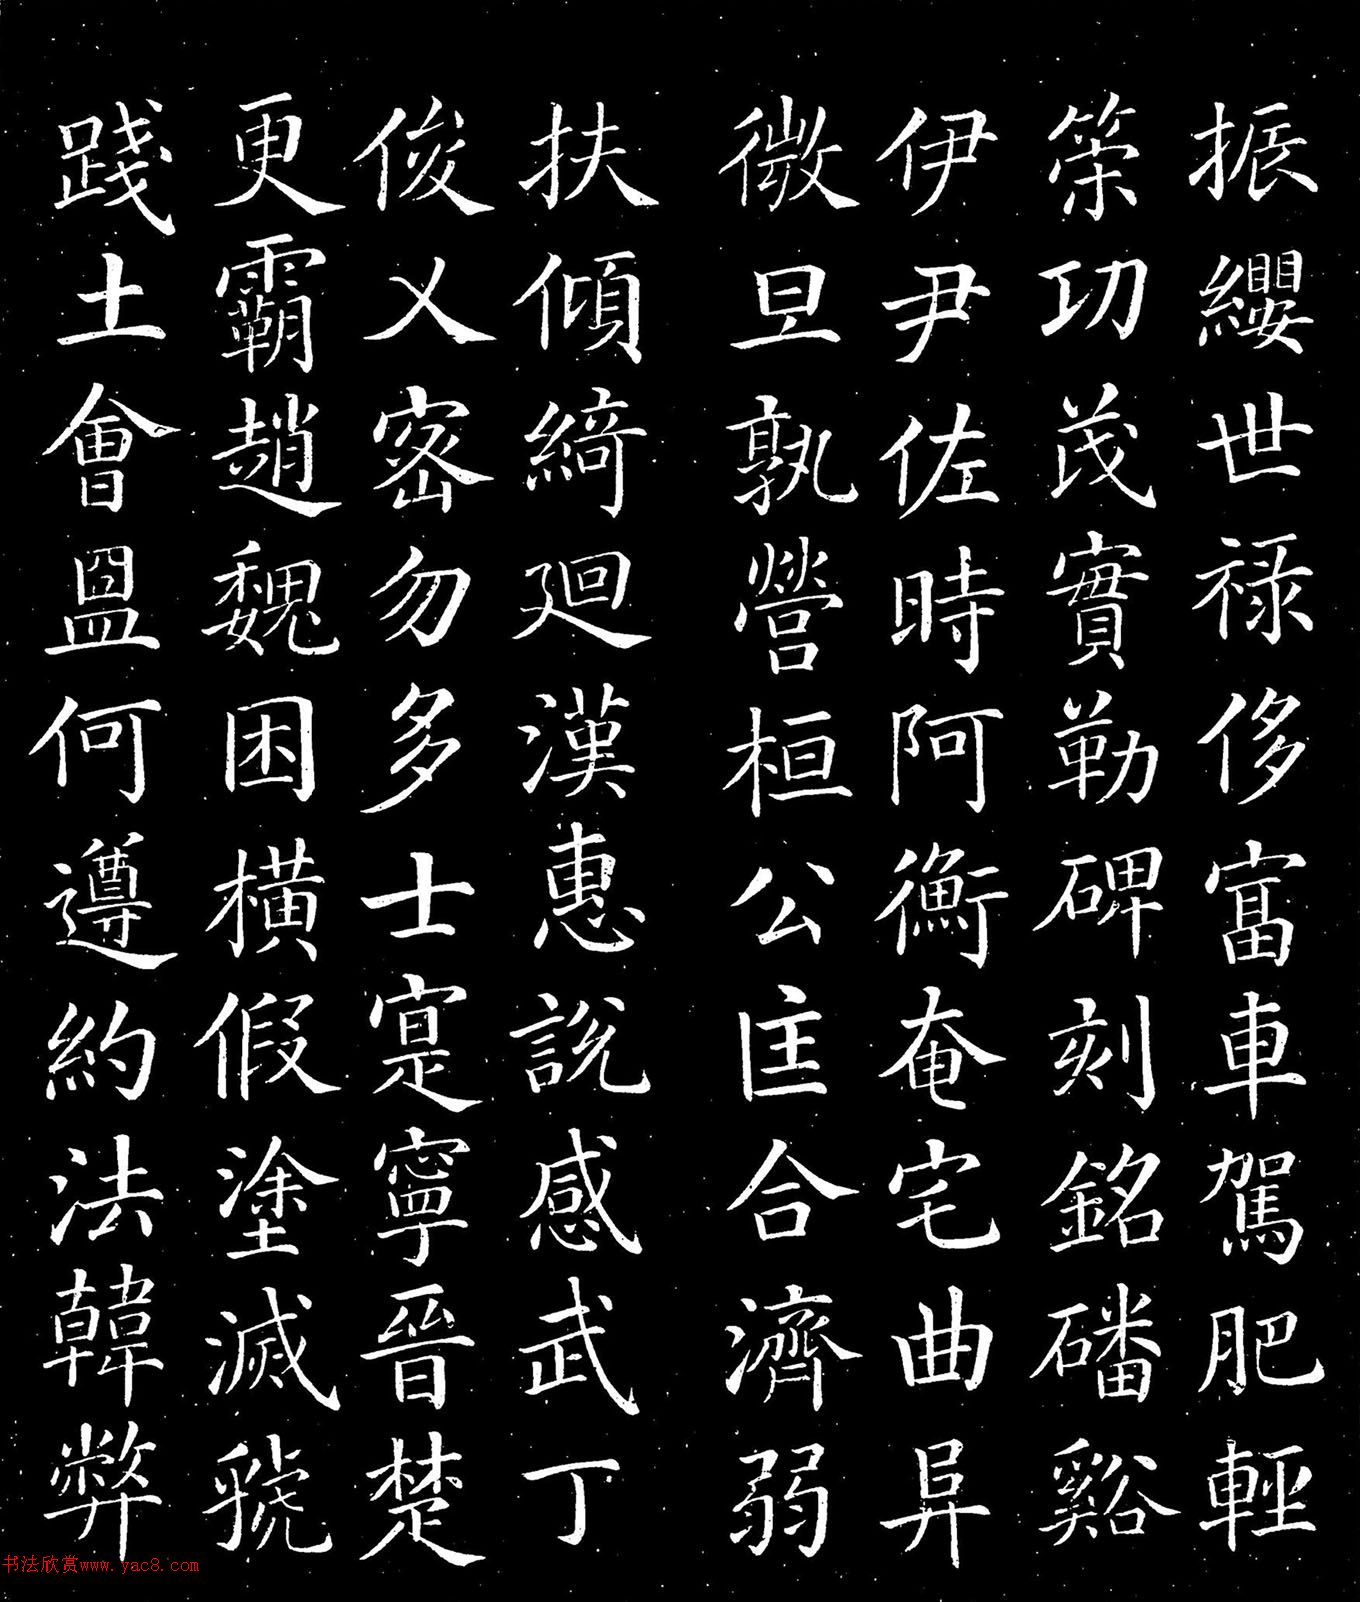 振纓世祿侈富車駕肥輕
策功茂實勒碑刻銘磻谿
伊尹佐時阿衡奄宅曲阜
微旦孰營桓公匡合濟弱
扶傾綺迴漢惠說感武丁
俊乂密勿多士寔寧晉楚
更霸趙魏困橫假塗滅虢
踐土會盟何遵約法韓弊
书法欣赏www.yac8.com